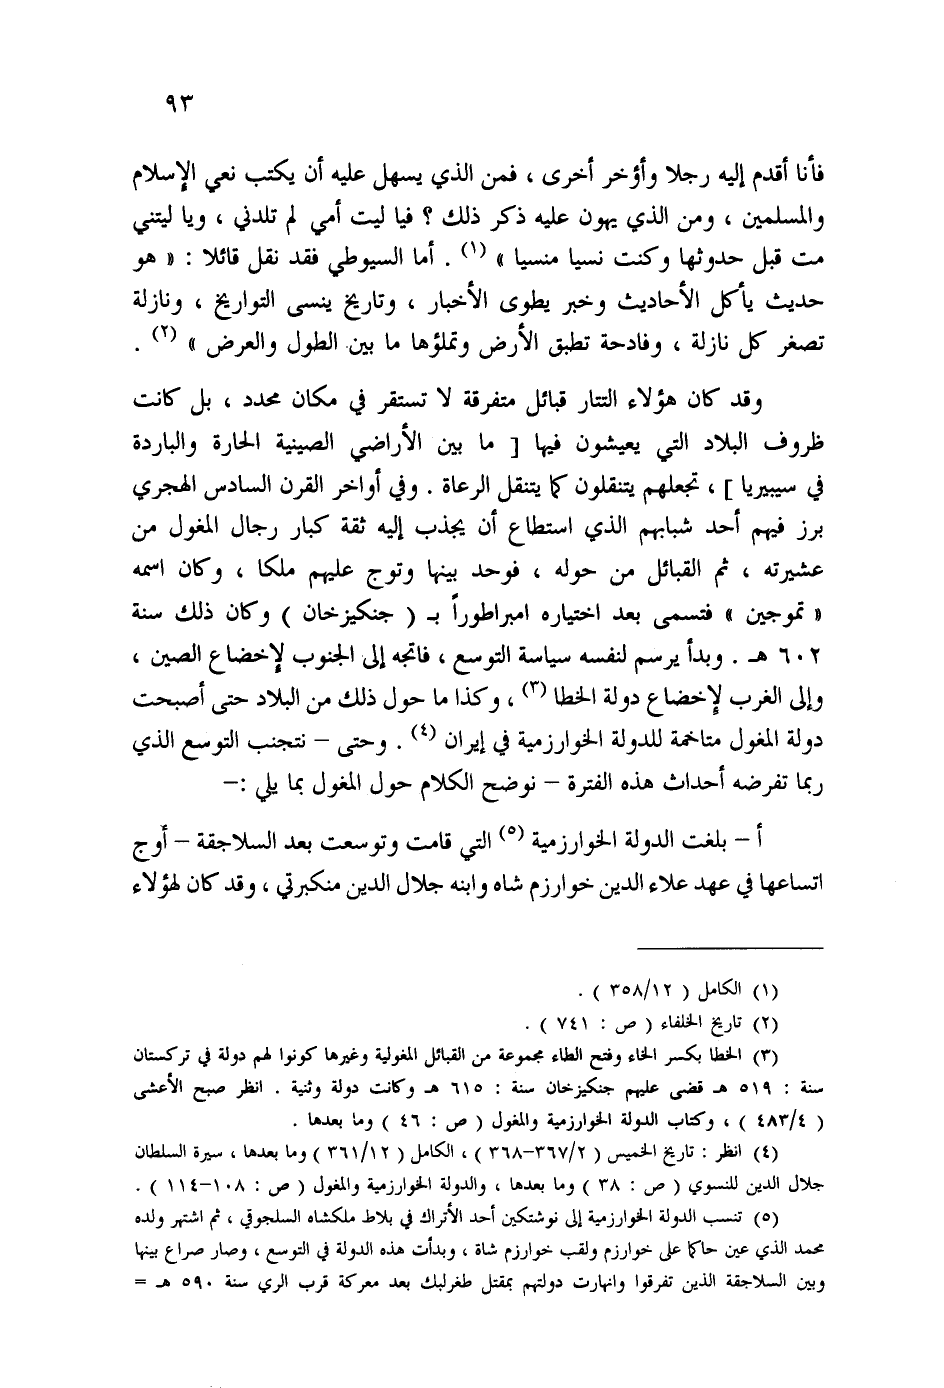 ٩٣
فأنا أقدم إليه رجلا وأؤخر أخرى ، فمن الذي يسهل عليه أن يكتب نعي الإسلام
والمسلمين ، ومن الذي يهون عليه ذكر ذلك ؟ فيا ليت أمي لم تلدني ، ويا ليتني
مت قبل حدوثها وكنت نسيا منسيا » (١) . أما السيوطي فقد نقل قائلا : « هو
حديث يأكل الأحاديث وخبر يطوى الأخبار ، وتاريخ ينسى التواريخ ، ونازلة
تصغر كل نازلة ، وفادحة تطبق الأرض وتملؤها ما بين الطول والعرض » (٢) .
وقد كان هؤلاء التتار قبائل متفرقة لا تستقر في مكان محدد ، بل كانت
ظروف البلاد التي يعيشون فيها [ ما بين الأراضي الصينية الحارة والباردة
في سيبيريا ] ، تجعلهم يتنقلون كما يتنقل الرعاة . وفي أواخر القرن السادس الهجري
برز فيهم أحد شبابهم الذي استطاع أن يجذب إليه ثقة كبار رجال المغول من
عشيرته ، ثم القبائل من حوله ، فوحد بينها وتوج عليهم ملكا ، وكان اسمه
« تموجين » فتسمى بعد اختياره امبراطوراً بـ ( جنكيزخان ) وكان ذلك سنة
٦٠٢ هـ . وبدأ يرسم لنفسه سياسة التوسع ، فاتجه إلى الجنوب لإخضاع الصين ،
وإلى الغرب لإخضاع دولة الخطا (٣) ، وكذا ما حول ذلك من البلاد حتى أصبحت
دولة المغول متاخمة للدولة الخوارزمية في إيران (٤) . وحتى – نتجنب التوسع الذي
ربما تفرضه أحداث هذه الفترة – نوضح الكلام حول المغول بما يلي :–
أ – بلغت الدولة الخوارزمية (٥) التي قامت وتوسعت بعد السلاجقة – أوج
اتساعها في عهد علاء الدين خوارزم شاه وابنه جلال الدين منكبرتي ، وقد كان لهؤلاء
(١) الكامل ( ٣٥٨/١٢ ) .
(٢) تاريخ الخلفاء ( ص : ٧٤١ ) .
(٣) الخطا بكسر الخاء وفتح الطاء مجموعة من القبائل المغولية وغيرها كونوا لهم دولة في تركستان
سنة : ٥١٩ هـ قضى عليهم جنكيزخان سنة : ٦١٥ هـ وكانت دولة وثنية . انظر صبح الأعشى
( ٤٨٣/٤ ) ، وكتاب الدولة الخوارزمية والمغول ( ص : ٤٦ ) وما بعدها .
(٤) انظر : تاريخ الخميس ( ٣٦٧/٢–٣٦٨ ) ، الكامل ( ٣٦١/١٢ ) وما بعدها ، سيرة السلطان
جلال الدين للنسوي ( ص : ٣٨ ) وما بعدها ، والدولة الخوارزمية والمغول ( ص : ١٠٨–١١٤ ) .
(٥) تنسب الدولة الخوارزمية إلى نوشتكين أحد الأتراك في بلاط ملكشاه السلجوقي ، ثم اشتهر ولده
محمد الذي عين حاكما على خوارزم ولقب خوارزم شاة ، وبدأت هذه الدولة في التوسع ، وصار صراع بينها
وبين السلاجقة الذين تفرقوا وانهارت دولتهم بمقتل طغرلبك بعد معركة قرب الري سنة ٥٩٠ هـ =